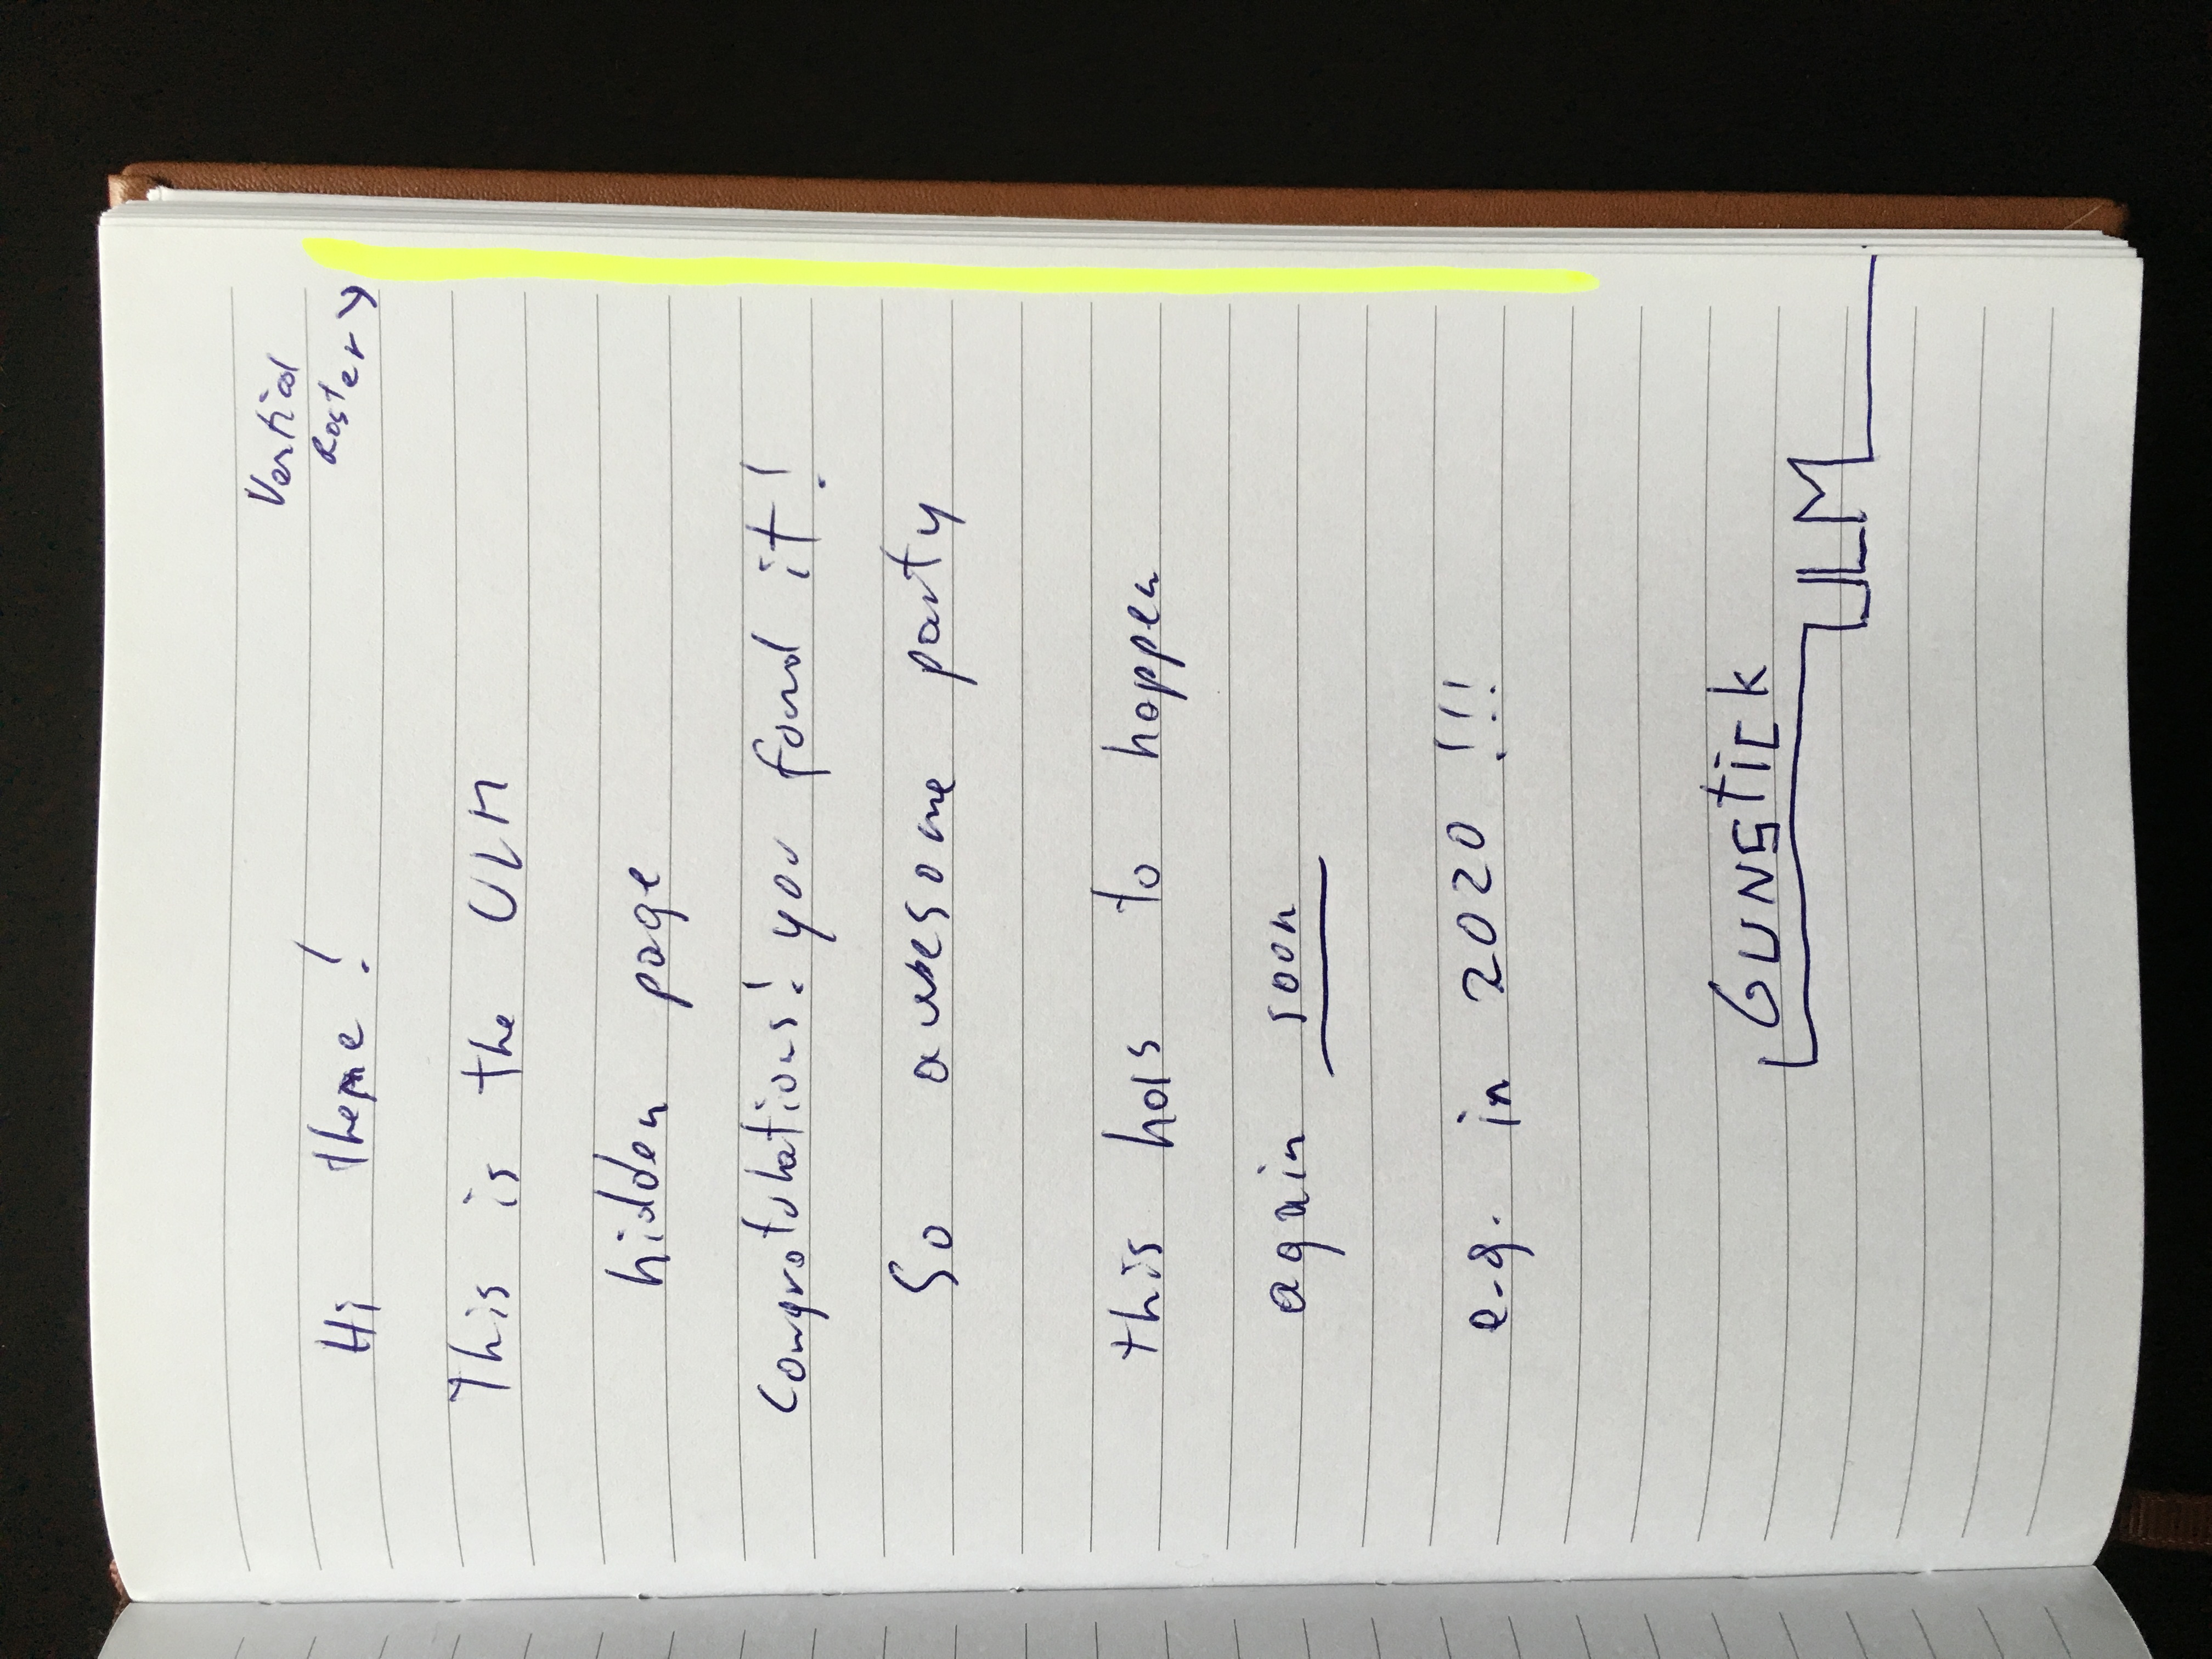 Vertical
Rastery
Hi there!
This is the ULM
hidden page
Congratulations! you found it!
So awesome party
this has to happen
again soon
e.g. in 2020 !!!
GUNSTICK
ULM